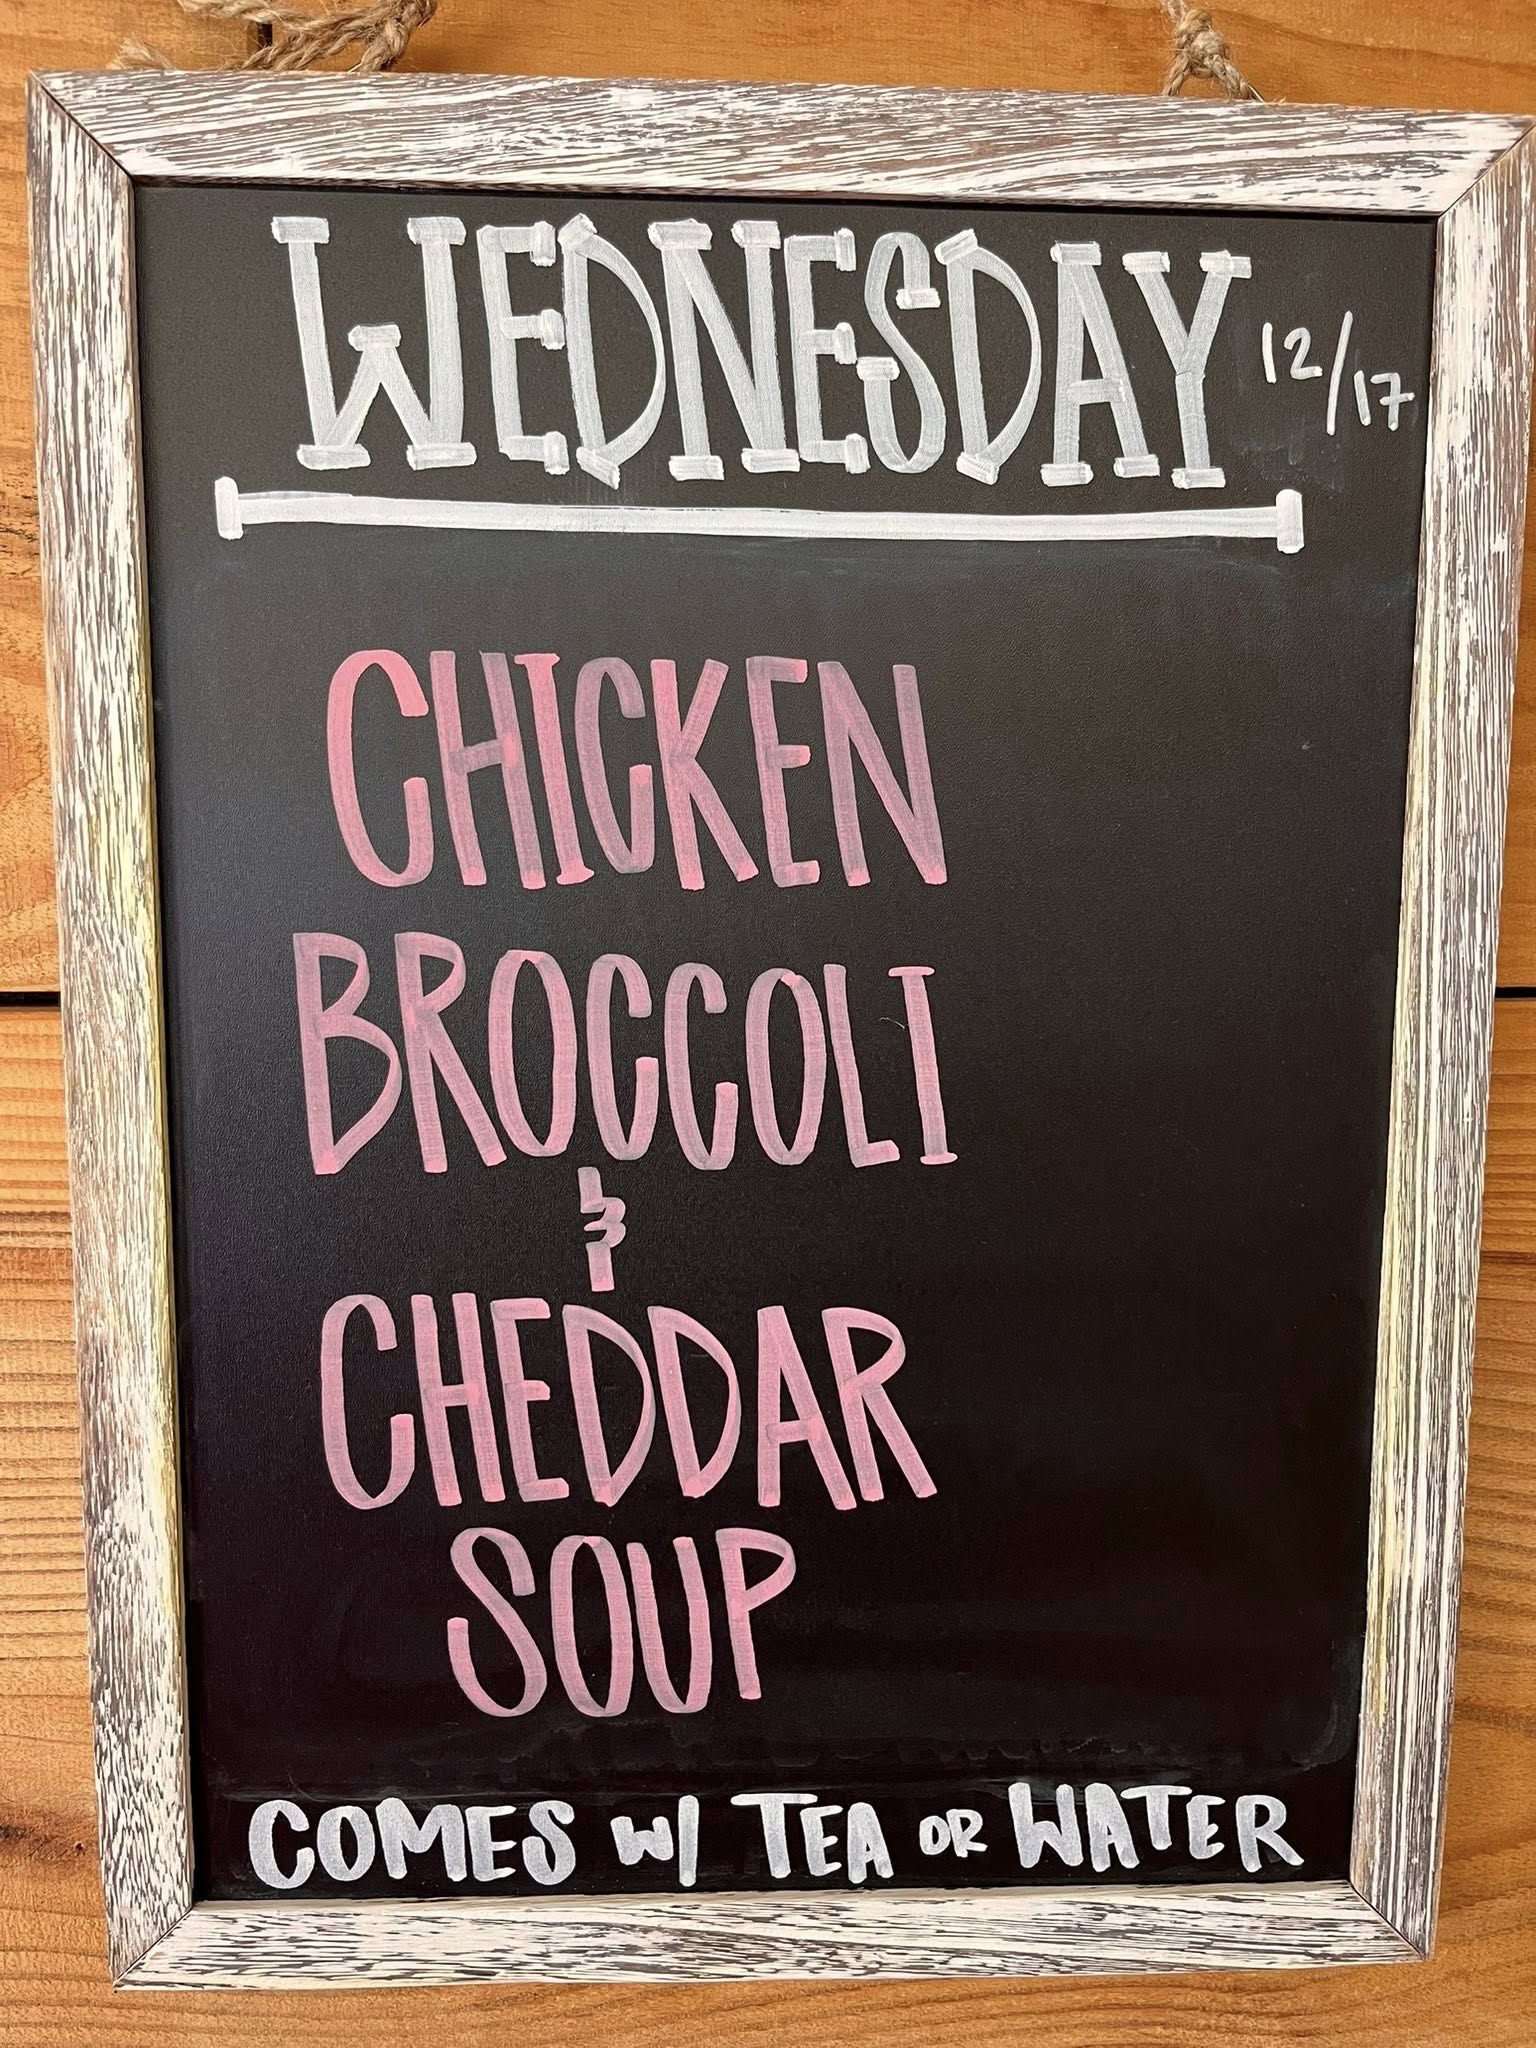 WEDNESDAY 12/17
CHICKEN
BROCCOLI
&
CHEDDAR
SOUP
COMES W/ TEA OR WATER